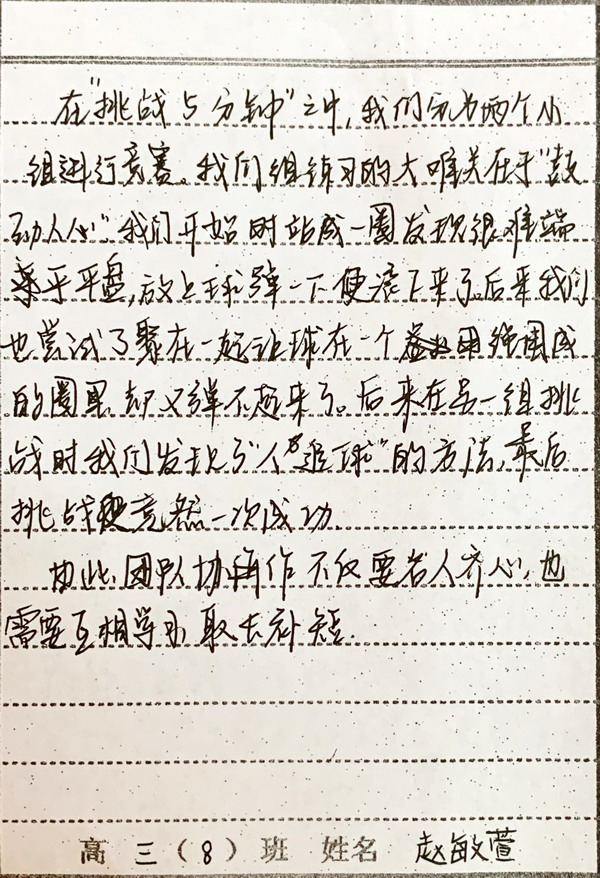 在"挑战5分钟"之中,我们分为两个小
组进行竞赛。我们组练习的大难关在于"鼓
动人心"。我们开始时站成一圈发现很难端
平平盘,放上球弹一下便滚下来了。后来我们
也尝试了聚在一起让球在一个 用绳围成
的圈里,却又弹不起来了。后来在另一组挑
战时我们发现了"人追球"的方法,最后
挑战竟然一次成功.
由此,团队协作不仅要各人齐心,也
需要互相学习 取长补短.
高三(8)班 姓名 赵敏萱